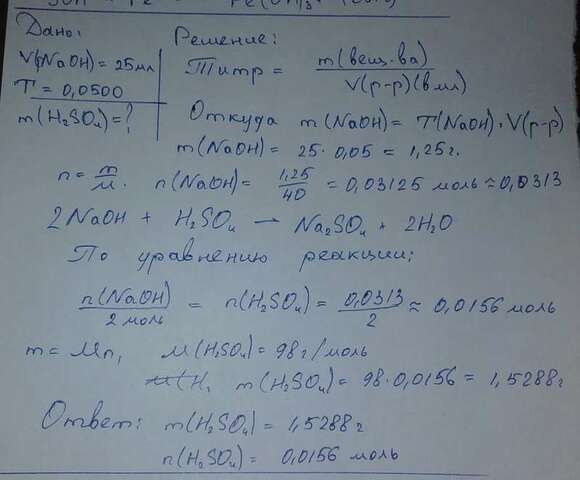 Дано:
V(NaOH) = 25мл
T = 0,0500
m(H₂SO₄) = ?
Решение:
Титр = m(вещ-ва) / V(р-р)(в мл)
Откуда m(NaOH) = T(NaOH) · V(р-р)
m(NaOH) = 25 · 0,05 = 1,25г.
n = m/M. n(NaOH) = 1,25/40 = 0,03125 моль ≈ 0,0313
2NaOH + H₂SO₄ → Na₂SO₄ + 2H₂O
По уравнению реакции:
n(NaOH)/2 моль = n(H₂SO₄) = 0,0313/2 ≈ 0,0156 моль
m = Mn, M(H₂SO₄) = 98 г/моль
m(H₂SO₄) = 98 · 0,0156 = 1,5288 г
Ответ: m(H₂SO₄) = 1,5288 г
n(H₂SO₄) = 0,0156 моль